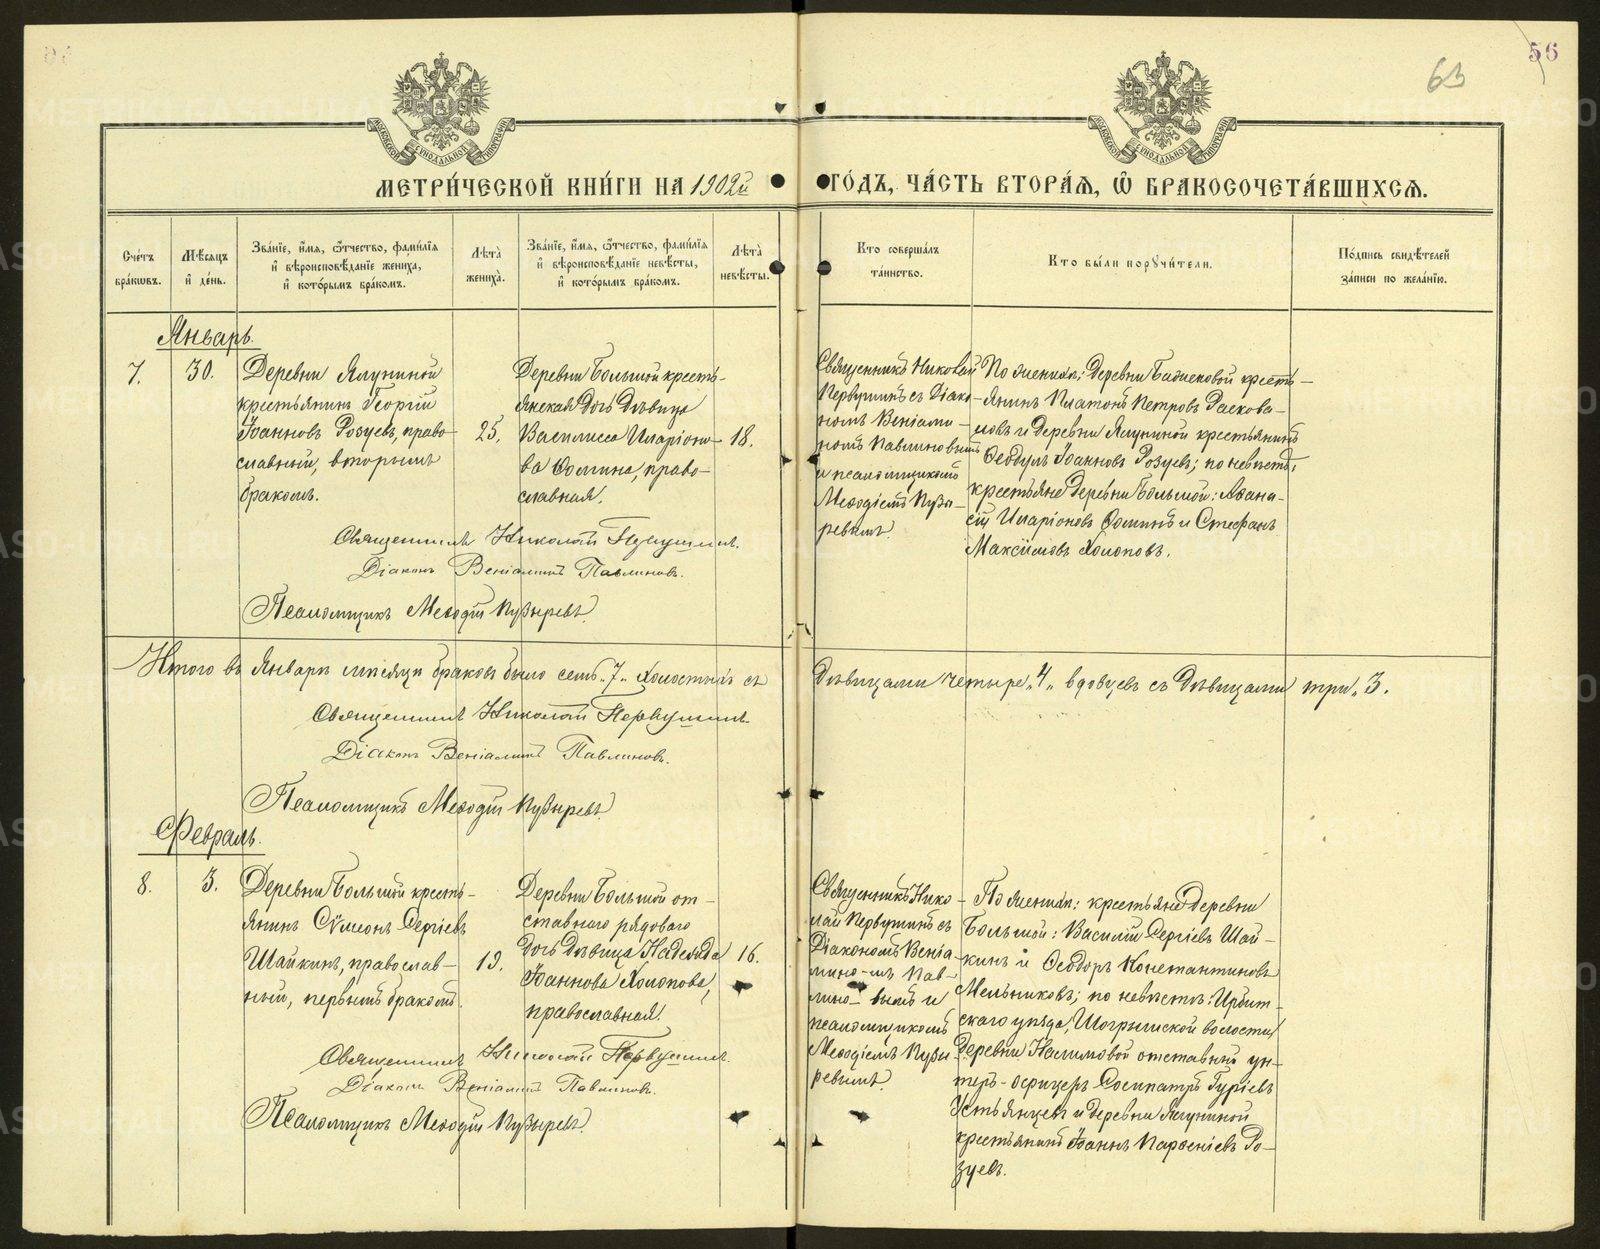 56
63
МОСКОВСКОЙ СѴНОДАЛЬНОЙ ТИПОГРАФІИ
МОСКОВСКОЙ СѴНОДАЛЬНОЙ ТИПОГРАФІИ
МЕТРИ́ЧЕСКОЙ КНИ́ГИ НА 1902й ГО́ДЪ, ЧА́СТЬ ВТОРА́Ѧ, Ѽ БРАКОСОЧЕТА́ВШИХСѦ.
Сче́тъ бра́кѡвъ.
Мѣ́сѧцъ и҆ де́нь.
Зва́нїе, и҆́мѧ, ѻ҆́тчество, фами́лїѧ и҆ вѣроисповѣ́данїе жениха̀, и҆ кото́рымъ бра́комъ.
Лѣта̀ жениха̀.
Зва́нїе, и҆́мѧ, ѻ҆́тчество, фами́лїѧ и҆ вѣроисповѣ́данїе невѣ́сты, и҆ кото́рымъ бра́комъ.
Лѣта̀ невѣ́сты.
Кто соверша́лъ та́инство.
Кто бы́ли порꙋчи́тели.
По́дпись свидѣ́телей за́писи по жела́нїю.
Январь.
7.
30.
Деревни Ялуниной
крестьянинъ Георгій
Іоанновъ Розуевъ, право-
славный, вторымъ
бракомъ.
25.
Деревни Большой кресть-
янская дочь дѣвица
Василисса Иларіоно-
ва Ѳомина, право-
славная.
18.
Священникъ Николай
Первушинъ съ Діако-
номъ Веніами-
номъ Павлиновымъ
и псаломщикомъ
Меѳодіемъ Пузы-
ревымъ.
По женихѣ: деревни крестьь-
янинъ Платонъ Петровъ
и деревни Ялуниной крестьянинъ
Ѳеодулъ Іоанновъ Розуевъ; по невѣстѣ:
крестьяне деревни Большой: Аѳана-
сій Иларіоновъ Ѳоминъ и Стефанъ
Максимовъ Холоповъ.
Священникъ Николай Первушинъ.
Діаконъ Веніаминъ Павлиновъ.
Псаломщикъ Меѳодій Пузыревъ.
Итого въ Январѣ мѣсяцѣ браковъ было семь „7„ холостыхъ съ дѣвицами четыре „4„ вдовцевъ съ дѣвицами три „3.
Священникъ Николай Первушинъ.
Діаконъ Веніаминъ Павлиновъ.
Псаломщикъ Меѳодій Пузыревъ.
Февраль.
8.
3.
Деревни Большой кресть-
янинъ Сѵмеонъ Сергіевъ
Шайкинъ, православ-
ный, первымъ бракомъ.
19.
Деревни Большой от-
ставного рядоваго
дочь дѣвица Надежда
Іоаннова Холопова,
православная.
16.
Священникъ Нико-
лай Первушинъ съ
Діакономъ Веніа-
мино-мъ Пав-
лино-вымъ и
псаломщикомъ
Меѳодіемъ Пузы-
ревымъ.
По женихѣ: крестьяне деревни
Большой: Василій Сергіевъ Шай-
кинъ и Ѳеодоръ Константиновъ
Мельниковъ; по невѣстѣ: Ирбит-
скаго уѣзда, Шогришской волости,
деревни отставный ун-
теръ-офицеръ Сосипатръ Гуріевъ
Устьянцевъ и деревни Ялуниной
крестьянинъ Іоаннъ Парѳеніевъ Ро-
зуевъ.
Священникъ Николай Первушинъ.
Діаконъ Веніаминъ Павлиновъ.
Псаломщикъ Меѳодій Пузыревъ.